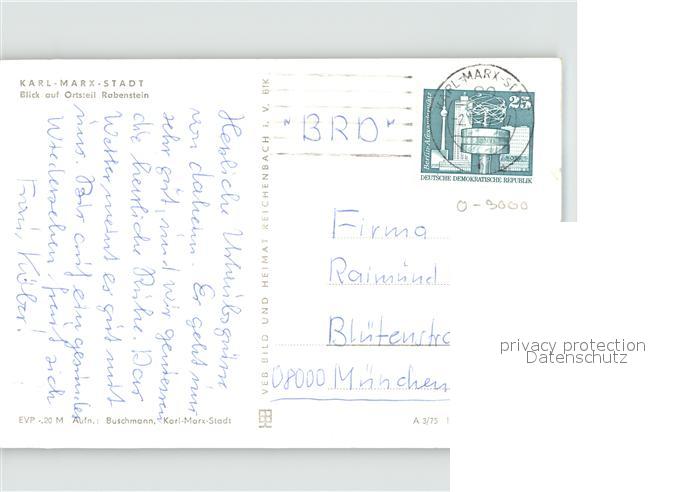 KARL-MARX-STADT
Blick auf Ortsteil Rabenstein
Herzliche Urlaubsgrüsse
von daheim. Es geht mir
sehr gut, und wir geniessen
die herrliche Ruhe. Das
Wetter meint es gut mit
uns. Bis auf ein gesundes
Wiedersehen, freut sich
EVP -,20 M Aufn.: Buschmann, Karl-Marx-Stadt
VEB BILD UND HEIMAT REICHENBACH i. V. BIK
A 3/75
"BRD"
KARL-MARX-S
25
Berlin, Alexanderplatz
DEUTSCHE DEMOKRATISCHE REPUBLIK
O-9000
Firma
Raimund
Blütenstra
08000 München
privacy protection
Datenschutz